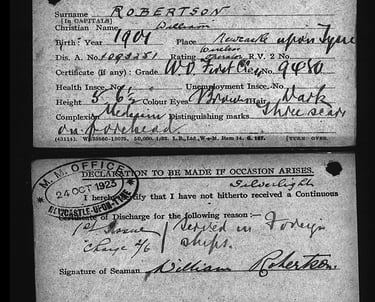 Surname ROBERTSON
[IN CAPITALS]
Christian Name William
Birth: Year 1901 Place Newcastle upon Tyne
Dis. A. No. 1093251 Rating Wireless Operator R.V. 2 No.
Certificate (if any): Grade W.O. First Class No. 9480
Health Insce. No. Unemployment Insce. No.
Height 5' 6½ Colour Eyes Brown Hair Dark
Complexion Distinguishing marks Three scars
on forehead.
(TURN OVER.
DECLARATION TO BE MADE IF OCCASION ARISES.
M. M. OFFICE
24 OCT 1923
NEWCASTLE-UPON-TYNE
Silverlight
I hereby certify that I have not hitherto received a Continuous
Certificate of Discharge for the following reason :—
1st Issue / Served in Foreign
Charge 2/6 / ships.
Signature of Seaman William Robertson.